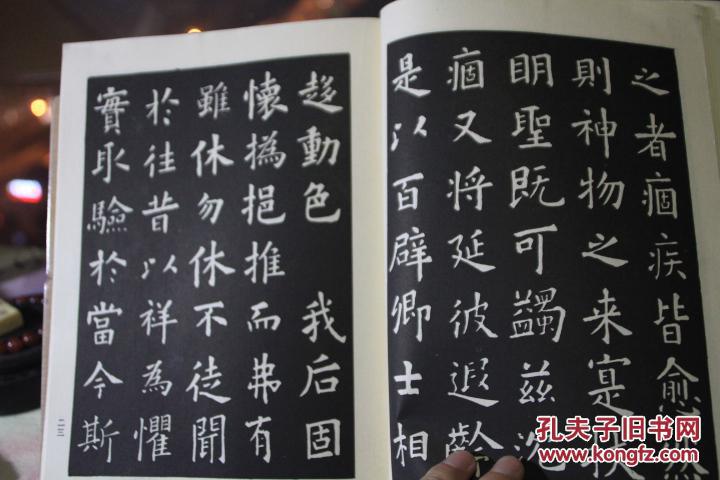 之者痼疾皆愈然
則神物之来寔扶
眀聖既可蠲兹沉
痼又将延彼遐齡
是以百辟卿士相
趍動色 我后固
懷撝挹推而弗有
雖休勿休不徒聞
於往昔以祥為懼
實取驗於當今斯
二三
孔夫子旧书网
www.kongfz.com